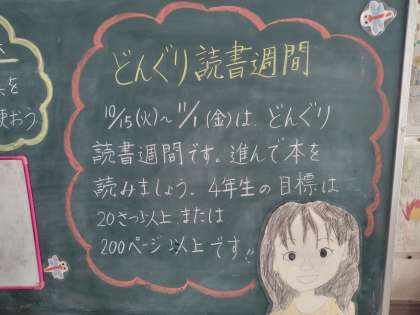 を
使おう
どんぐり読書週間
10/15(火)～11/1(金)は、どんぐり
読書週間です。進んで本を
読みましょう。4年生の目標は
20さつ以上 または
200ページ以上です!!